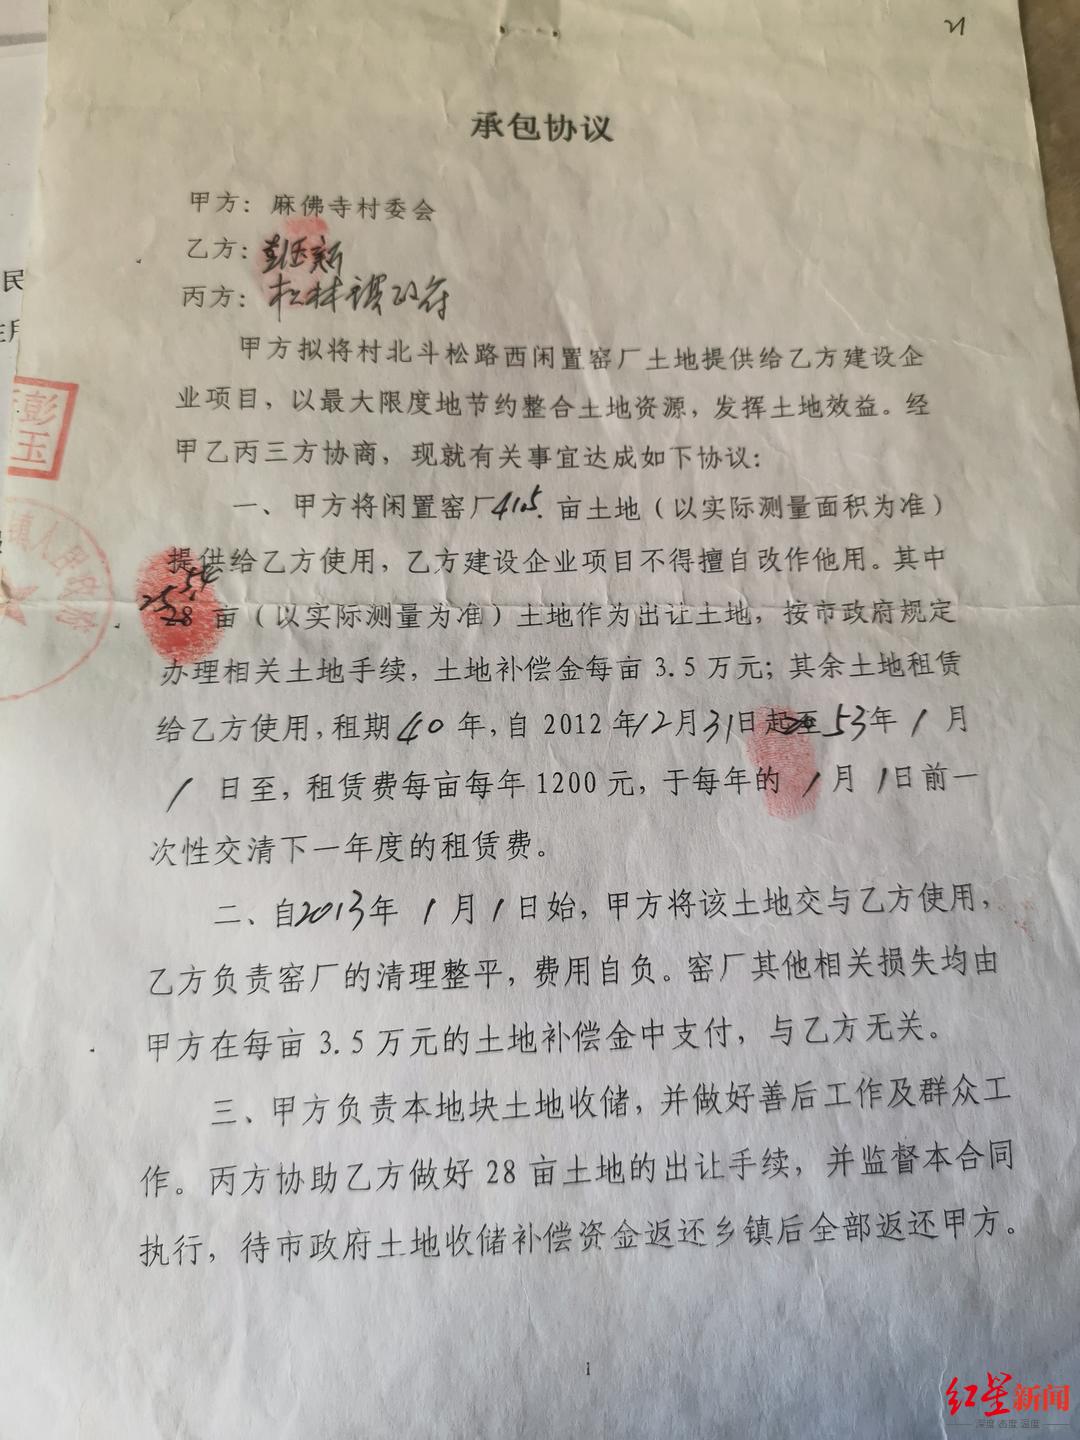 21
承包协议
甲方：麻佛寺村委会
乙方：彭玉新
丙方：松林镇政府
甲方拟将村北斗松路西闲置窑厂土地提供给乙方建设企
业项目，以最大限度地节约整合土地资源，发挥土地效益。经
甲乙丙三方协商，现就有关事宜达成如下协议：
一、甲方将闲置窑厂41.5.亩土地（以实际测量面积为准）
提供给乙方使用，乙方建设企业项目不得擅自改作他用。其中
28 亩（以实际测量为准）土地作为出让土地，按市政府规定
办理相关土地手续，土地补偿金每亩 3.5 万元；其余土地租赁
给乙方使用，租期40年，自 2012 年12月31日起至53年1月
1日至，租赁费每亩每年 1200 元，于每年的1月1日前一
次性交清下一年度的租赁费。
二、自2013年1月1日始，甲方将该土地交与乙方使用，
乙方负责窑厂的清理整平，费用自负。窑厂其他相关损失均由
甲方在每亩 3.5 万元的土地补偿金中支付，与乙方无关。
三、甲方负责本地块土地收储，并做好善后工作及群众工
作。丙方协助乙方做好 28 亩土地的出让手续，并监督本合同
执行，待市政府土地收储补偿资金返还乡镇后全部返还甲方。
1
民
彭
玉
镇人民政府
红星新闻
深度 态度 温度